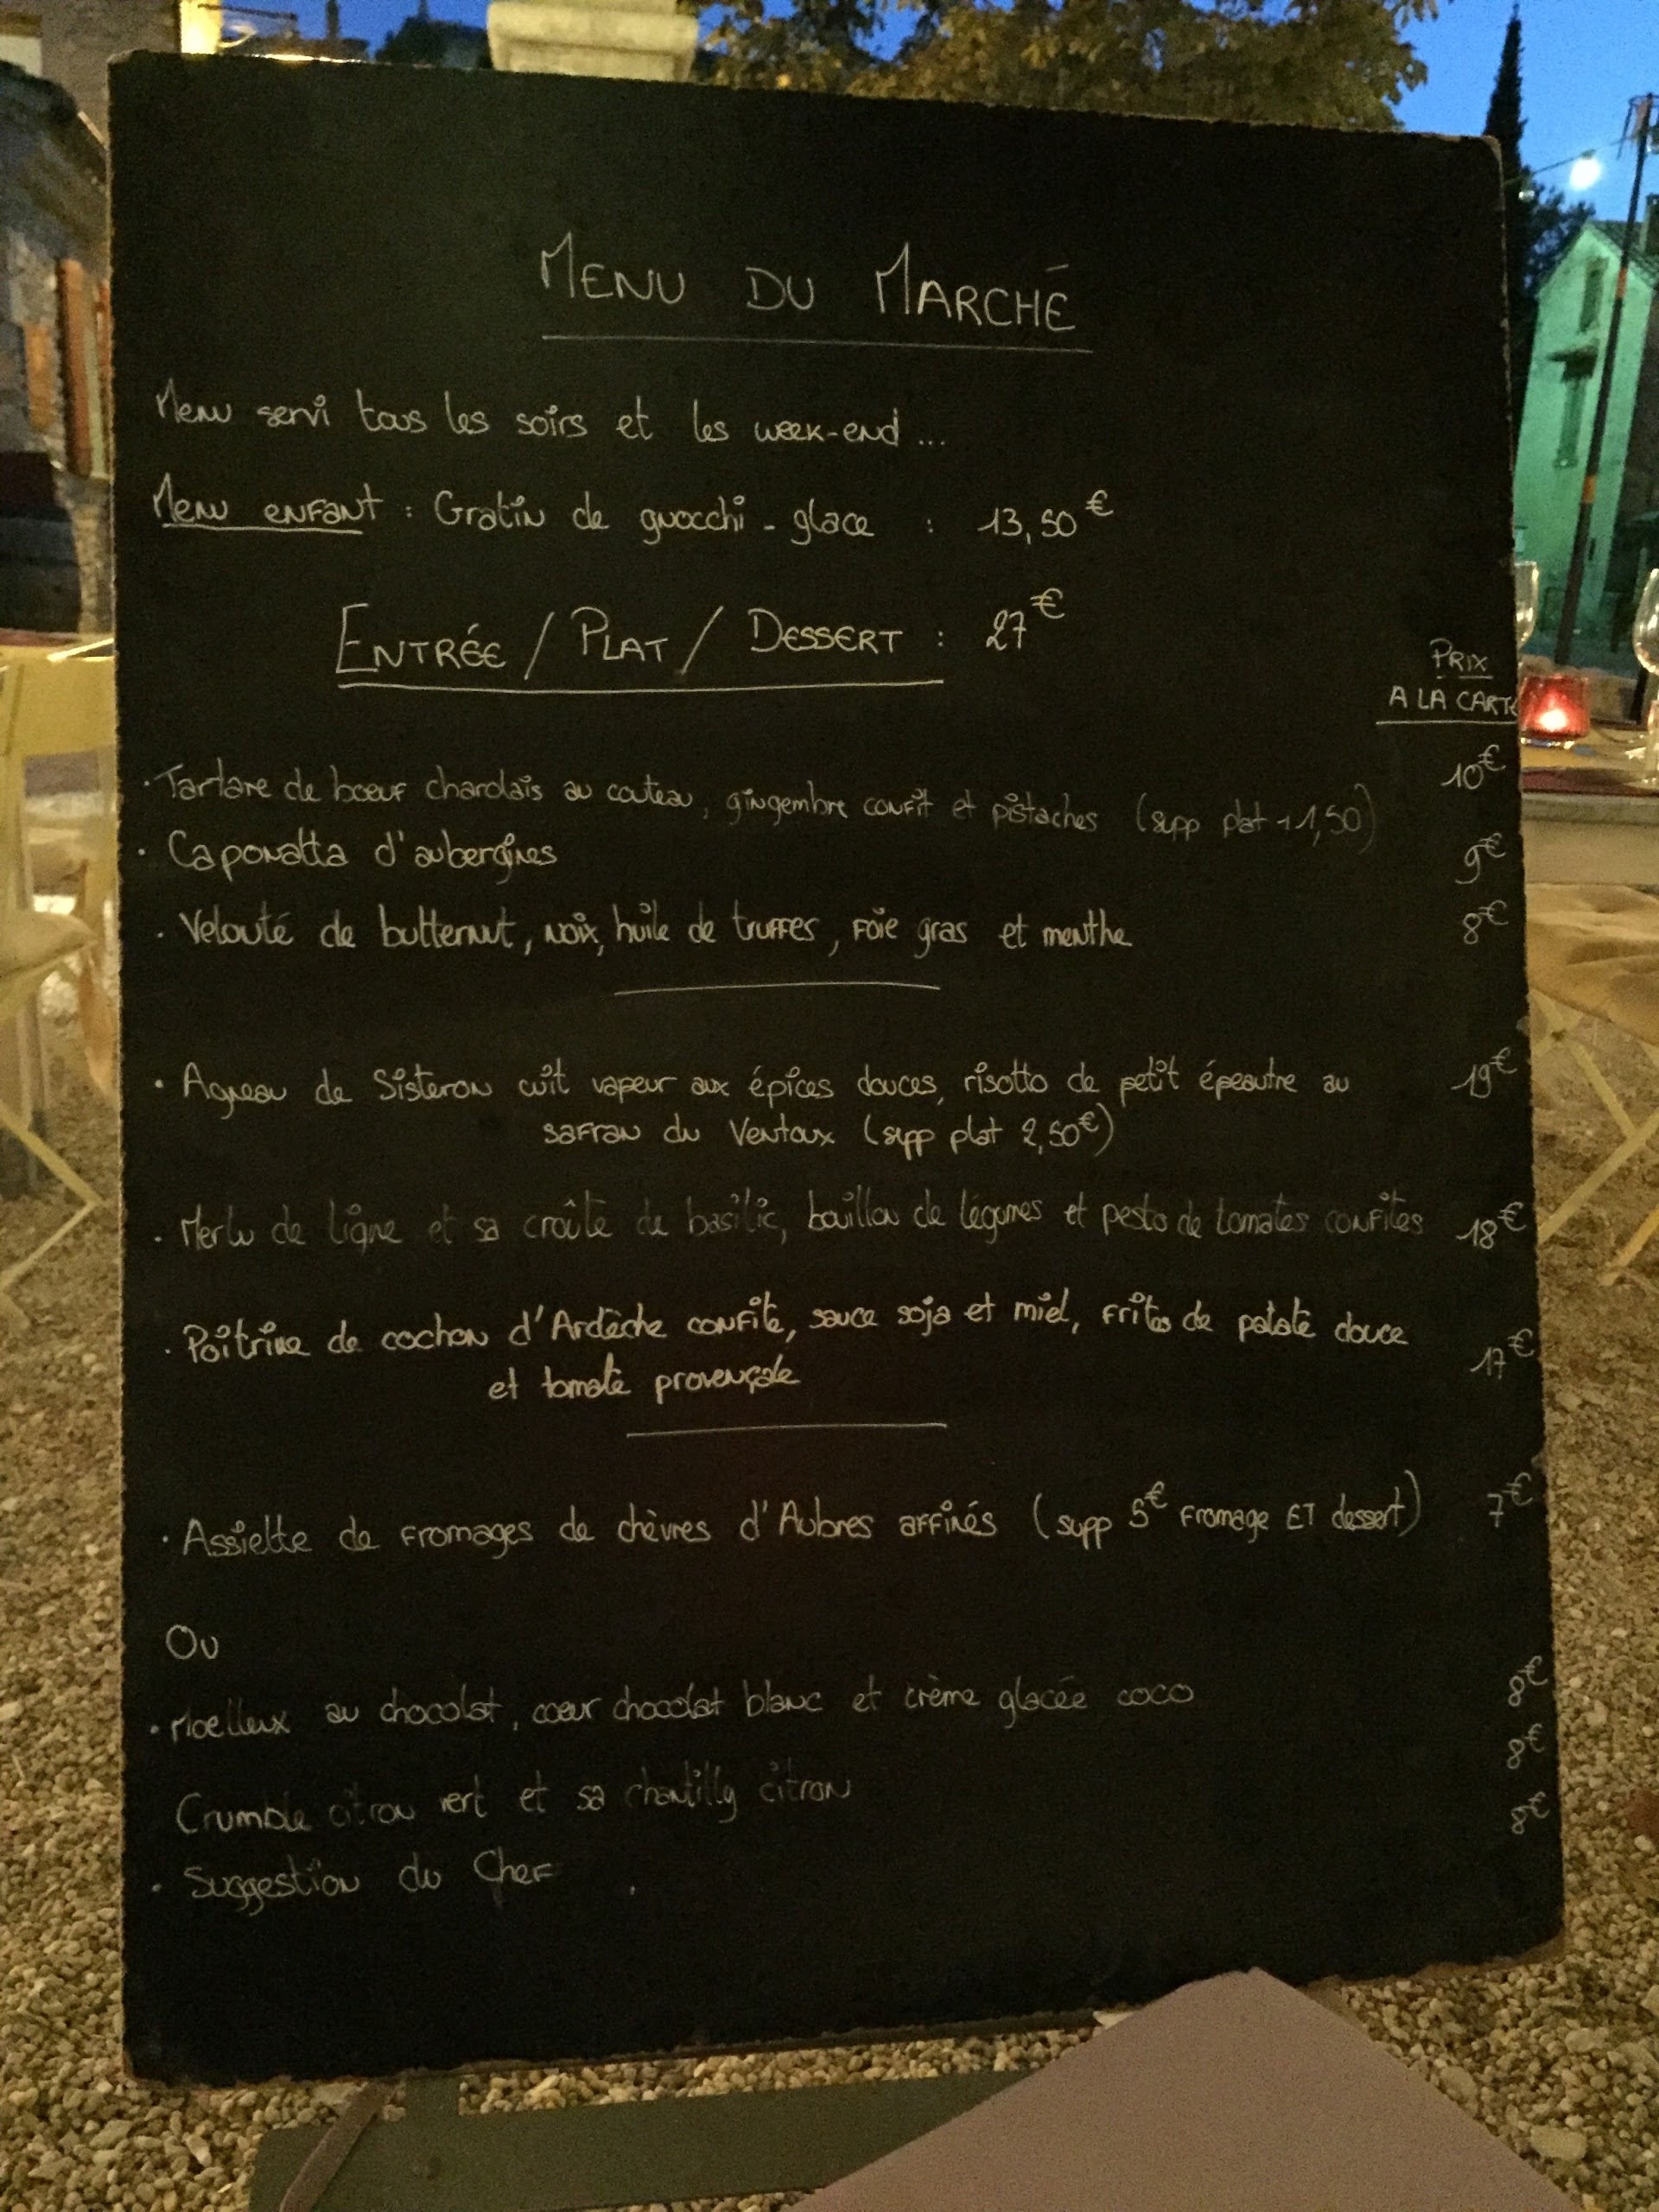 MENU DU MARCHÉ
Menu servi tous les soirs et les week-end ...
Menu enfant : Gratin de gnocchi - glace : 13,50€
ENTRÉE / PLAT / DESSERT : 27€
PRIX
A LA CARTE
· Tartare de boeuf charolais au couteau, gingembre confit et pistaches (supp plat +1,50) 10€
· Caponatta d'aubergines 9€
· Velouté de butternut, noix, huile de truffes, foie gras et menthe 8€
· Agneau de Sisteron cuit vapeur aux épices douces, risotto de petit épeautre au 19€
safran du Ventoux (supp plat 2,50€)
· Merlu de ligne et sa croûte de basilic, bouillon de légumes et pesto de tomates confites 18€
· Poitrine de cochon d'Ardèche confite, sauce soja et miel, frites de patate douce 17€
et tomate provençale
· Assiette de fromages de chèvres d'Aubres affinés (supp 5€ fromage ET dessert) 7€
Ou
· Moelleux au chocolat, coeur chocolat blanc et crème glacée coco 8€
Crumble citron vert et sa chantilly citron 8€
· Suggestion du Chef 8€